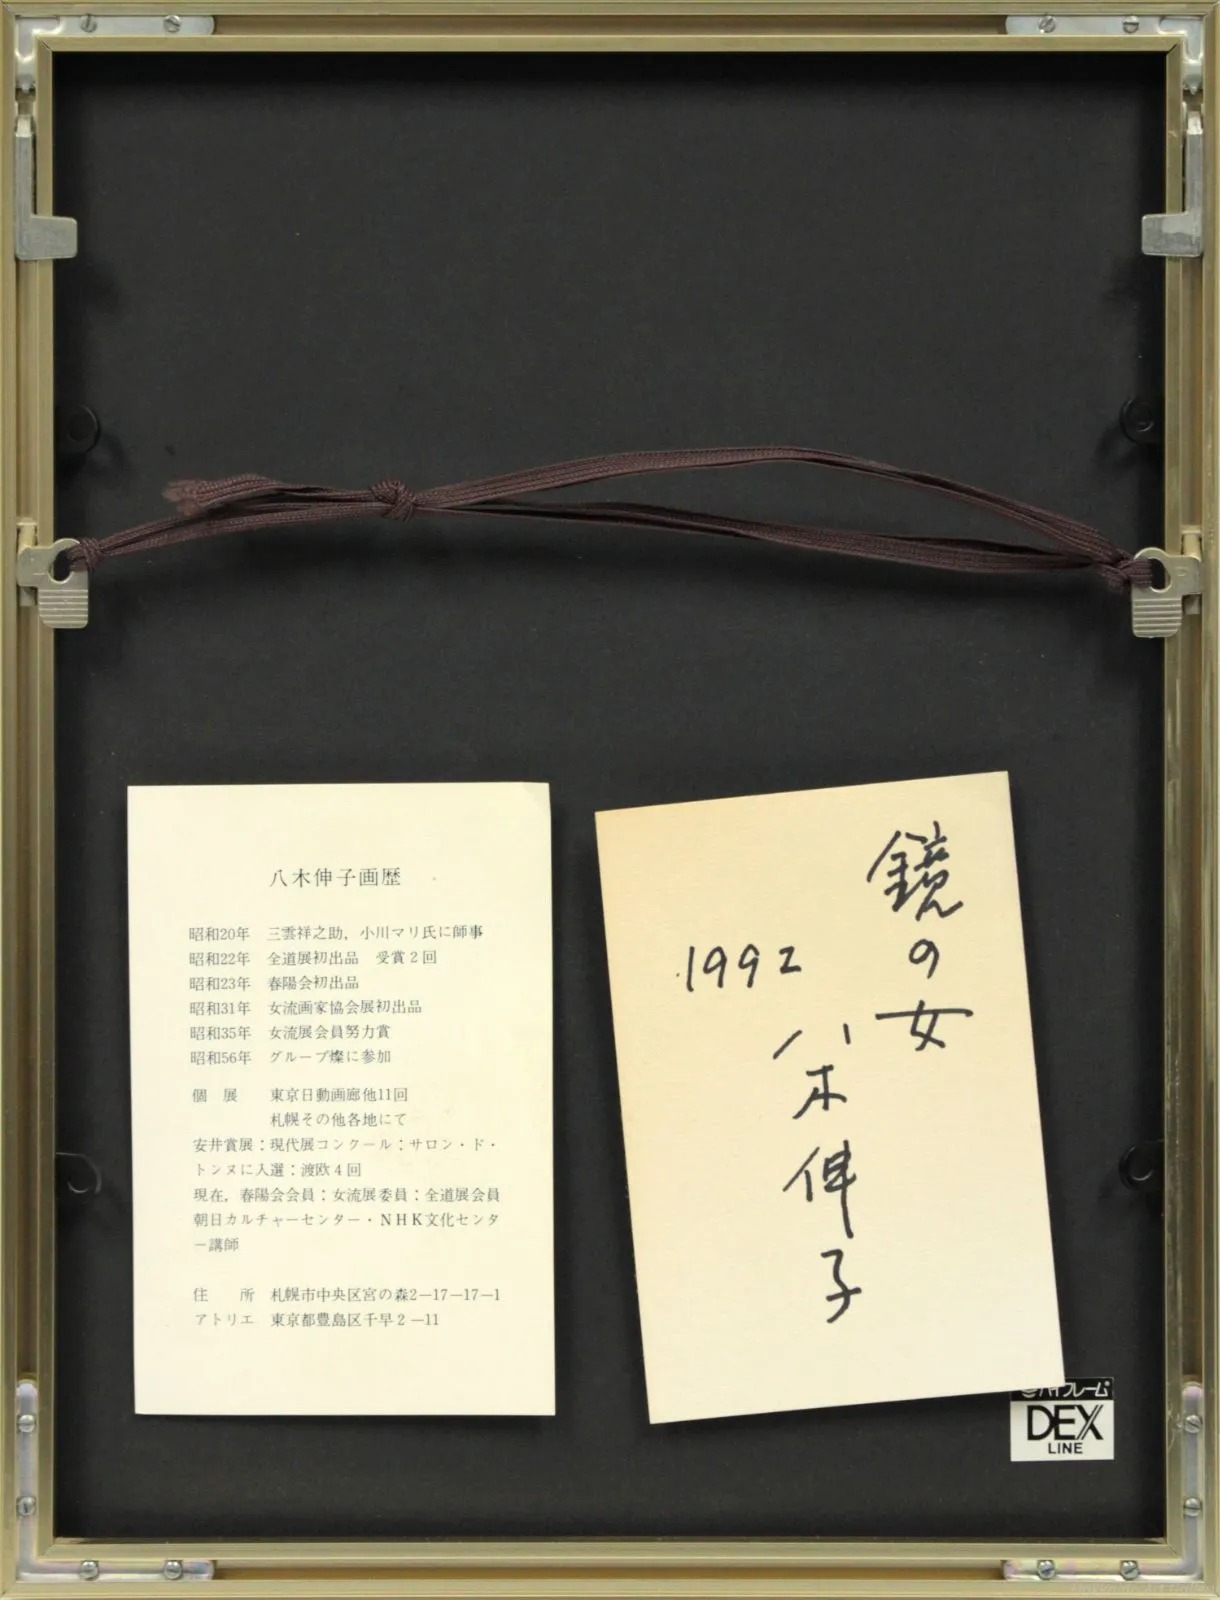 八木伸子画歴
昭和20年 三雲祥之助，小川マリ氏に師事
昭和22年 全道展初出品 受賞2回
昭和23年 春陽会初出品
昭和31年 女流画家協会展初出品
昭和35年 女流展会員努力賞
昭和56年 グループ燦に参加
個 展 東京日動画廊他11回
札幌その他各地にて
安井賞展：現代展コンクール：サロン・ド・
トンヌに入選：渡欧4回
現在，春陽会会員：女流展委員：全道展会員
朝日カルチャーセンター・NHK文化センタ
ー講師
住 所 札幌市中央区宮の森2—17—17—1
アトリエ 東京都豊島区千早2—11
鏡の女
1992
八木伸子
ハイフレーム
DEX
LINE